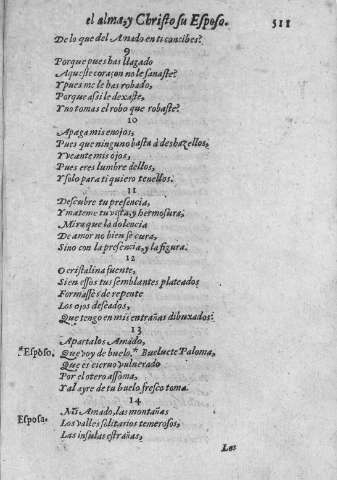 el alma, y Christo su Esposo. 511
De lo que del Amado en ti concibes?
9
Porque pues has llagado
Aqueste coraçon no le sanaste?
Y pues me le has robado,
Porque assi le dexaste,
Y no tomas el robo que robaste?
10
Apaga mis enojos,
Pues que ninguno basta à deshazellos,
Y veante mis ojos,
Pues eres lumbre dellos,
Y solo para ti quiero tenellos.
11
Descubre tu presencia,
Y mateme tu vista, y hermosura,
Mira que la dolencia
De amor no bien se cura,
Sino con la presencia, y la figura.
12
O cristalina fuente,
Si en essos tus semblantes plateados
Formasses de repente
Los ojos deseados,
Que tengo en mis entrañas dibuxados.
13
Apartalos Amado,
*Esposo. Que voy de buelo.* Buelvete Paloma,
Que es ciervo vulnerado
Por el otero assoma,
Y al ayre de tu buelo fresco toma.
14
Esposa. Mi Amado, las montañas
Los valles solitarios temerosos,
Las insulas estrañas,
Los